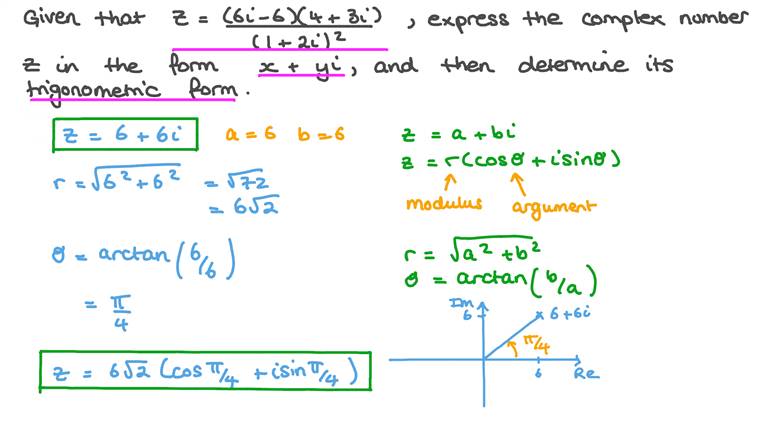 Given that z = (6i-6)(4+3i) / (1+2i)², express the complex number
z in the form x + yi, and then determine its
trigonometric form.
z = 6 + 6i
a = 6 b = 6
r = √6² + 6² = √72
= 6√2
θ = arctan(6/6)
= π/4
z = 6√2 (cos π/4 + i sin π/4)
z = a + bi
z = r(cosθ + i sinθ)
modulus argument
r = √a² + b²
θ = arctan(b/a)
Im
6
6+6i
π/4
6
Re